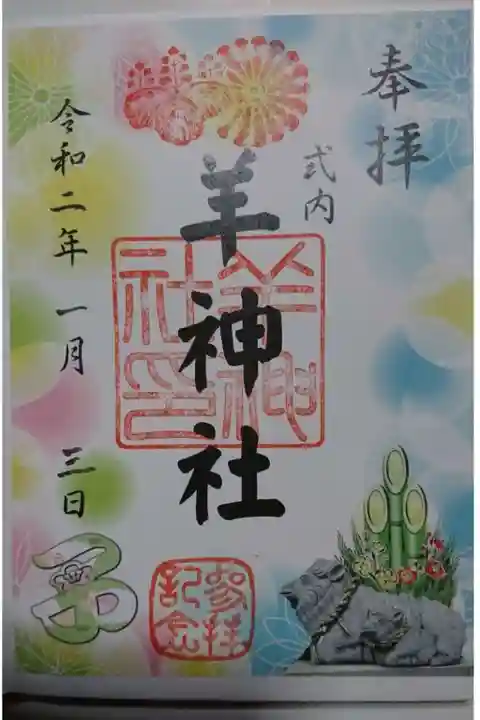 奉拝
式内
羊神社
羊神社印
令和二年 一月 三日
参拝記念
子